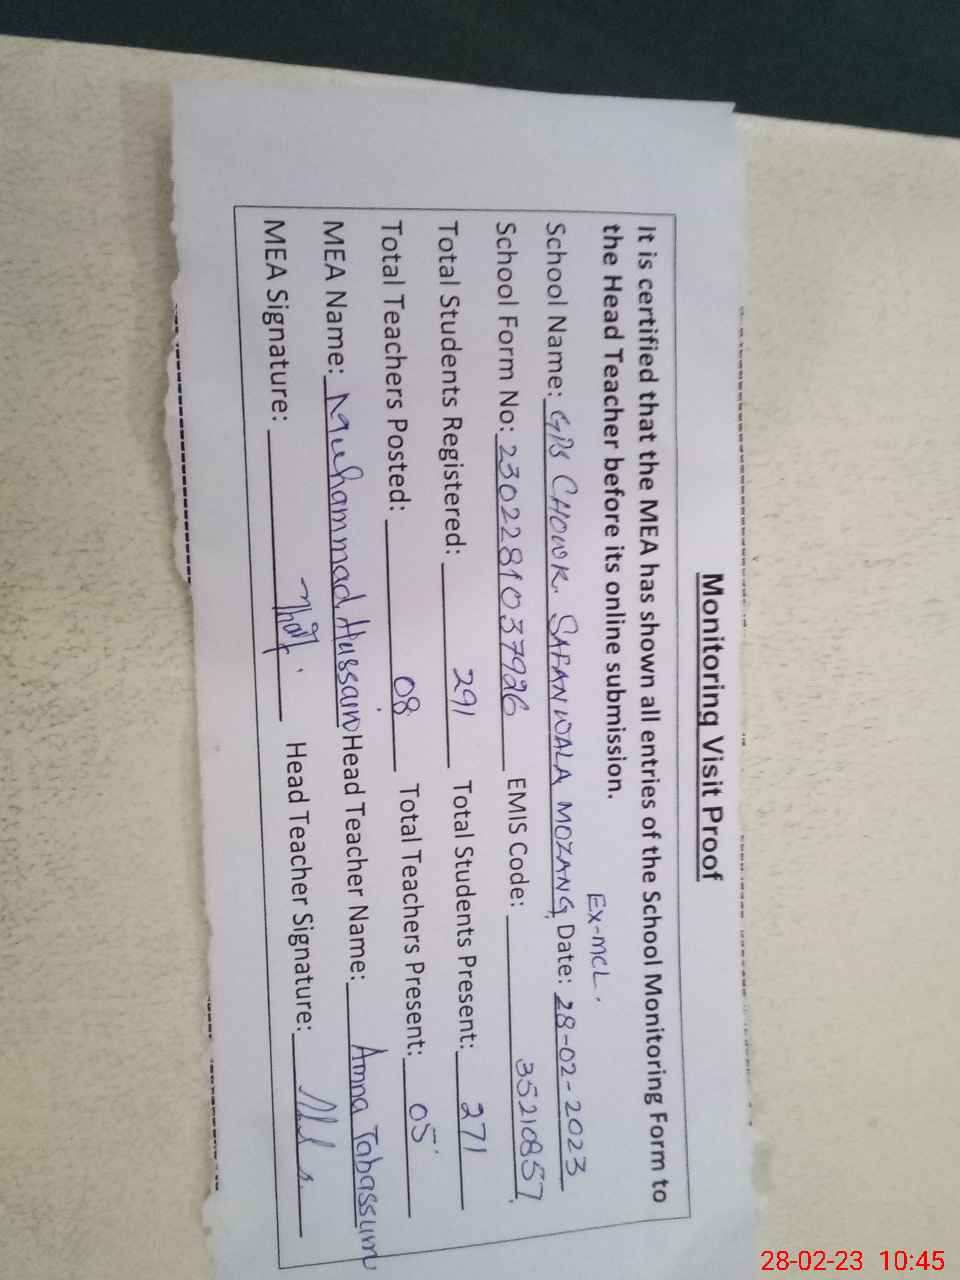 Monitoring Visit Proof
It is certified that the MEA has shown all entries of the School Monitoring Form to
the Head Teacher before its online submission.
Ex-MCL.
School Name: GPS CHOWK SAFANWALA MOZANG, Date: 28-02-2023
School Form No: 2302281037926 EMIS Code: 35210857
Total Students Registered: 291 Total Students Present: 271
Total Teachers Posted: 08 Total Teachers Present: 05
MEA Name: Muhammad Hussain Head Teacher Name: Amna Tabassum
MEA Signature: Head Teacher Signature:
28-02-23 10:45